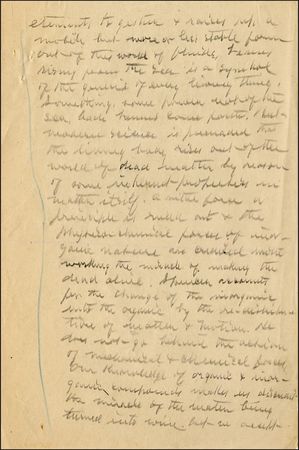 elements together & raises up a
mobile but more or less stable form
out of this world of fluids, Venus
rising from the sea is a symbol
of the genesis of every living thing.
Something, some power not of the
sea, had
modern science is persuaded that
the living body rises out of the
world of dead matter by reason
of some inherent properties in
matter itself. A vital force or
principle is ruled out & the
physico-chemical forces of inor-
ganic nature are credited with
working the miracle of making the
dead alive. Spencer accounts
for the change of the inorganic
into the organic by the re-distribu-
tion of matter & motion. He
does not go behind the action
of mechanical & chemical forces.
Our knowledge of organic & inor-
ganic compounds makes us
the miracle of the water being
turned into wine. But we accept